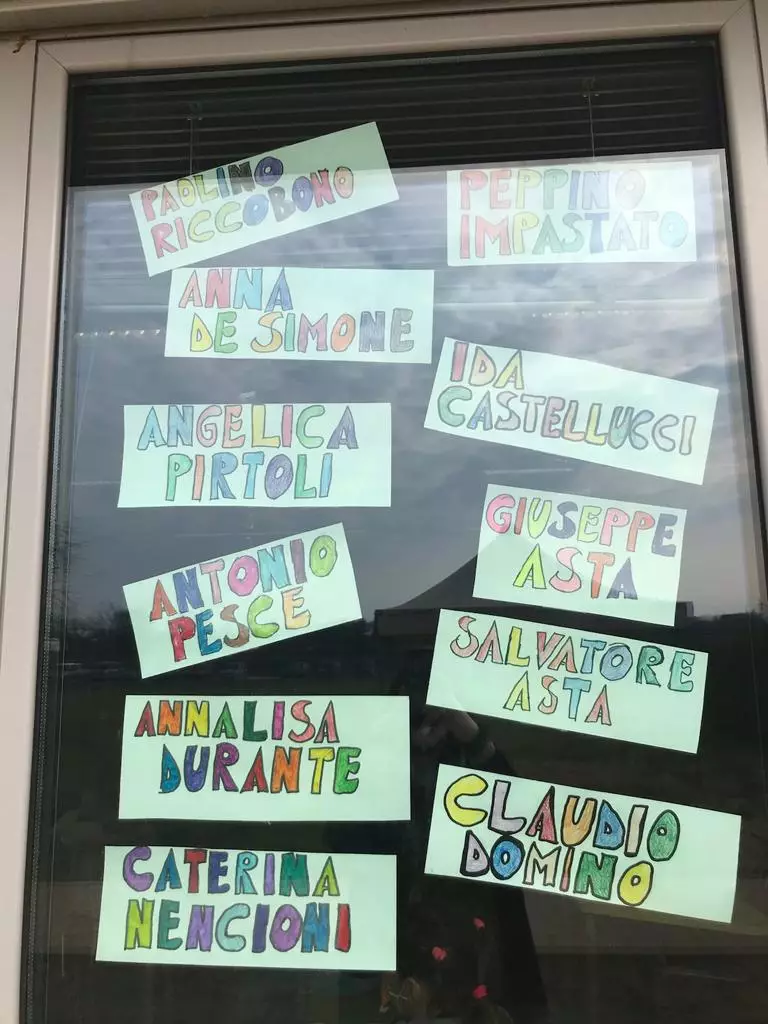 PAOLINO
RICCOBONO
PEPPINO
IMPASTATO
ANNA
DE SIMONE
IDA
CASTELLUCCI
ANGELICA
PIRTOLI
GIUSEPPE
ASTA
ANTONIO
PESCE
SALVATORE
ASTA
ANNALISA
DURANTE
CLAUDIO
DOMINO
CATERINA
NENCIONI